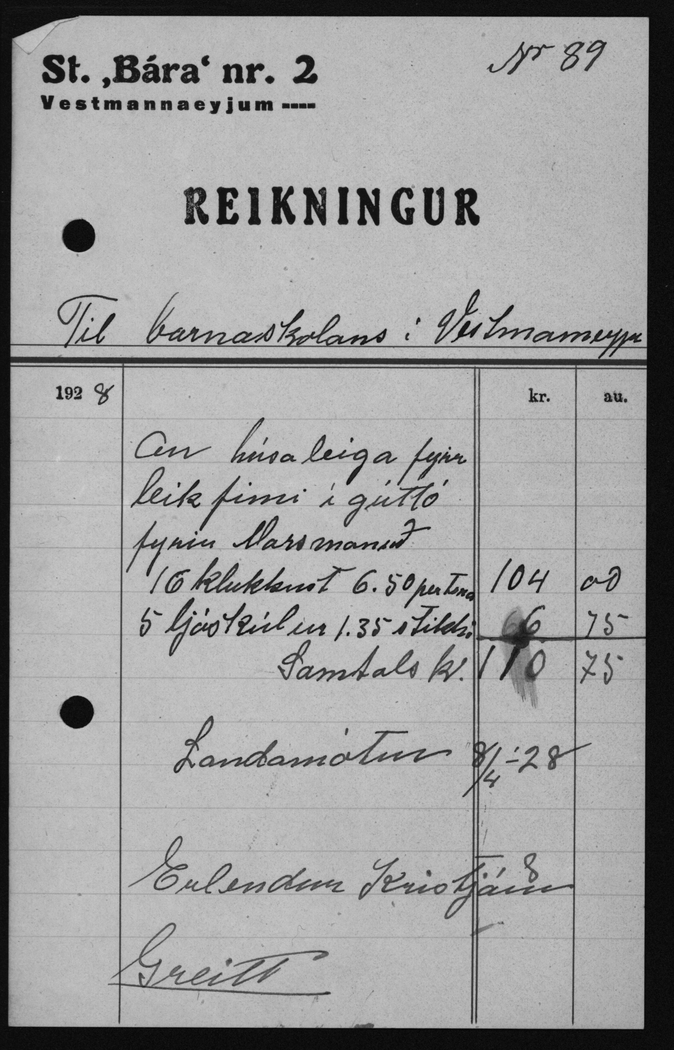 St. ‚Bára‘ nr. 2
Nr 89
Vestmannaeyjum ----
REIKNINGUR
Til barnaskolans í Vestmaneyju
1928 kr. au.
húsaleiga fyrir
leikfimi í gúttó
fyrir Marsmanuð
16 klukkust 6.50 per tíma 104 00
5 ljóskúlur 1.35 stikki 6 75
Samtals kr. 110 75
8/4-28
Erlendur Kristjáns
Greitt